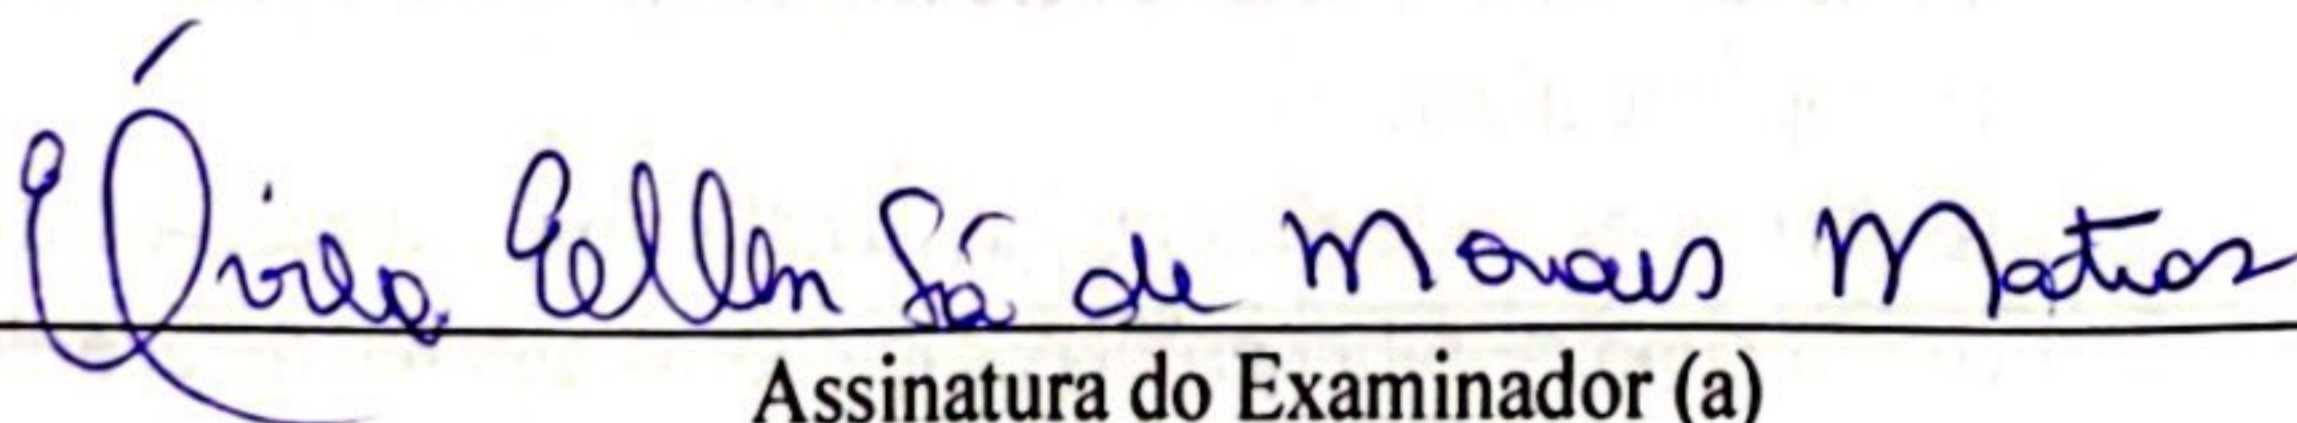 Ellen Sá de Morais Matos
Assinatura do Examinador (a)